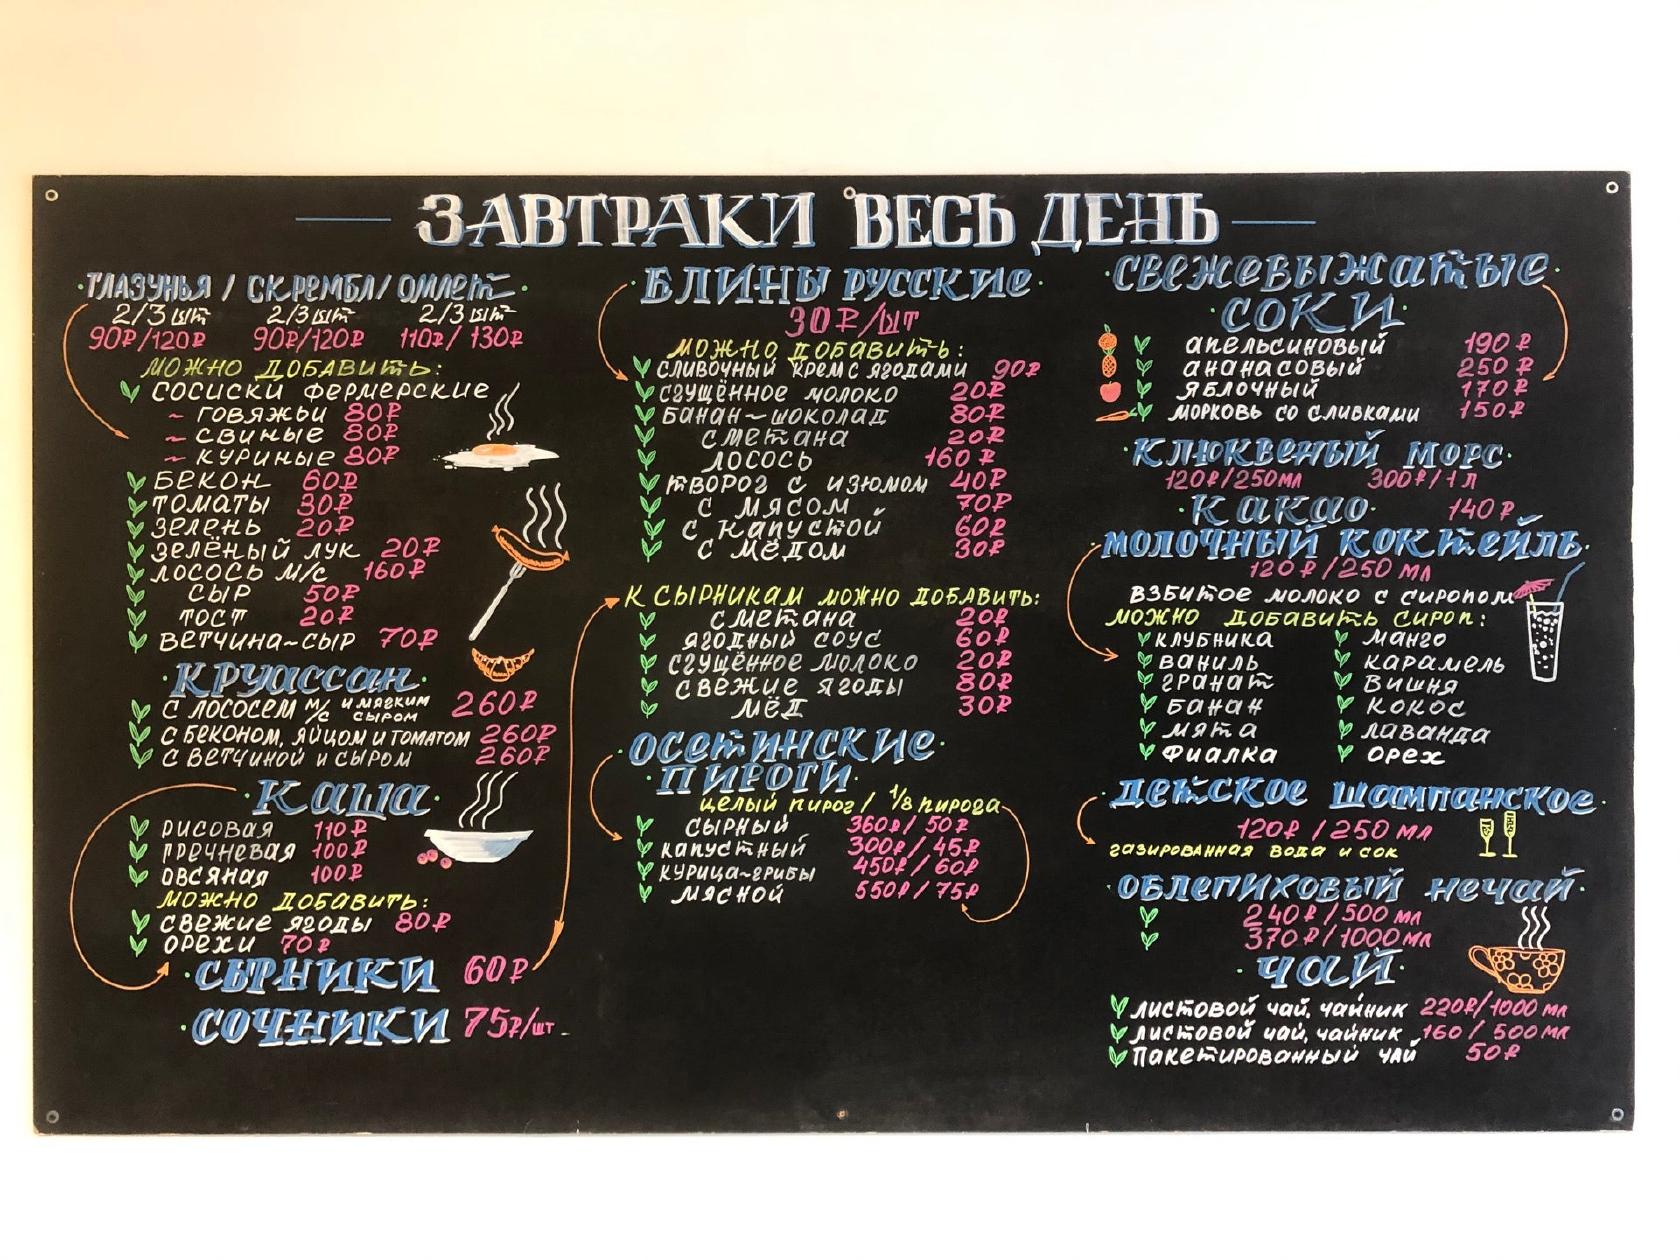 ЗАВТРАКИ ВЕСЬ ДЕНЬ
ГЛАЗУНЬЯ / СКРЕМБЛ / ОМЛЕТ
2/3 шт 2/3 шт 2/3 шт
90₽/120₽ 90₽/120₽ 110₽/130₽
МОЖНО ДОБАВИТЬ:
СОСИСКИ ФЕРМЕРСКИЕ
~ ГОВЯЖЬИ 80₽
~ СВИНЫЕ 80₽
~ КУРИНЫЕ 80₽
БЕКОН 60₽
ТОМАТЫ 30₽
ЗЕЛЕНЬ 20₽
ЗЕЛЁНЫЙ ЛУК 20₽
ЛОСОСЬ М/С 160₽
СЫР 50₽
ТОСТ 20₽
ВЕТЧИНА~СЫР 70₽
КРУАССАН
С ЛОСОСЕМ М/С И МЯГКИМ СЫРОМ 260₽
С БЕКОНОМ, ЯЙЦОМ И ТОМАТОМ 260₽
С ВЕТЧИНОЙ И СЫРОМ 260₽
КАША
РИСОВАЯ 110₽
ГРЕЧНЕВАЯ 100₽
ОВСЯНАЯ 100₽
МОЖНО ДОБАВИТЬ:
СВЕЖИЕ ЯГОДЫ 80₽
ОРЕХИ 70₽
СЫРНИКИ 60₽
СОЧНИКИ 75₽/шт
БЛИНЫ РУССКИЕ
30₽/ШТ
МОЖНО ДОБАВИТЬ:
СЛИВОЧНЫЙ КРЕМ С ЯГОДАМИ 90₽
СГУЩЁННОЕ МОЛОКО 20₽
БАНАН~ШОКОЛАД 80₽
СМЕТАНА 20₽
ЛОСОСЬ 160₽
ТВОРОГ С ИЗЮМОМ 40₽
С МЯСОМ 70₽
С КАПУСТОЙ 60₽
С МЁДОМ 30₽
К СЫРНИКАМ МОЖНО ДОБАВИТЬ:
СМЕТАНА 20₽
ЯГОДНЫЙ СОУС 60₽
СГУЩЁННОЕ МОЛОКО 20₽
СВЕЖИЕ ЯГОДЫ 80₽
МЁД 30₽
ОСЕТИНСКИЕ
ПИРОГИ
ЦЕЛЫЙ ПИРОГ / 1/8 ПИРОГА
СЫРНЫЙ 360₽/50₽
КАПУСТНЫЙ 300₽/45₽
КУРИЦА~ГРИБЫ 450₽/60₽
МЯСНОЙ 550₽/75₽
СВЕЖЕВЫЖАТЫЕ
СОКИ
АПЕЛЬСИНОВЫЙ 190₽
АНАНАСОВЫЙ 250₽
ЯБЛОЧНЫЙ 170₽
МОРКОВЬ СО СЛИВКАМИ 150₽
КЛЮКВЕНЫЙ МОРС
120₽/250МЛ 300₽/1Л
КАКАО 140₽
МОЛОЧНЫЙ КОКТЕЙЛЬ
120₽/250 МЛ
ВЗБИТОЕ МОЛОКО С СИРОПОМ
МОЖНО ДОБАВИТЬ СИРОП:
КЛУБНИКА МАНГО
ВАНИЛЬ КАРАМЕЛЬ
ГРАНАТ ВИШНЯ
БАНАН КОКОС
МЯТА ЛАВАНДА
ФИАЛКА ОРЕХ
ДЕТСКОЕ ШАМПАНСКОЕ
120₽/250 МЛ
ГАЗИРОВАННАЯ ВОДА И СОК
ОБЛЕПИХОВЫЙ НЕЧАЙ
240₽/500 МЛ
370₽/1000 МЛ
ЧАЙ
ЛИСТОВОЙ ЧАЙ, ЧАЙНИК 220₽/1000 МЛ
ЛИСТОВОЙ ЧАЙ, ЧАЙНИК 160/500 МЛ
ПАКЕТИРОВАННЫЙ ЧАЙ 50₽